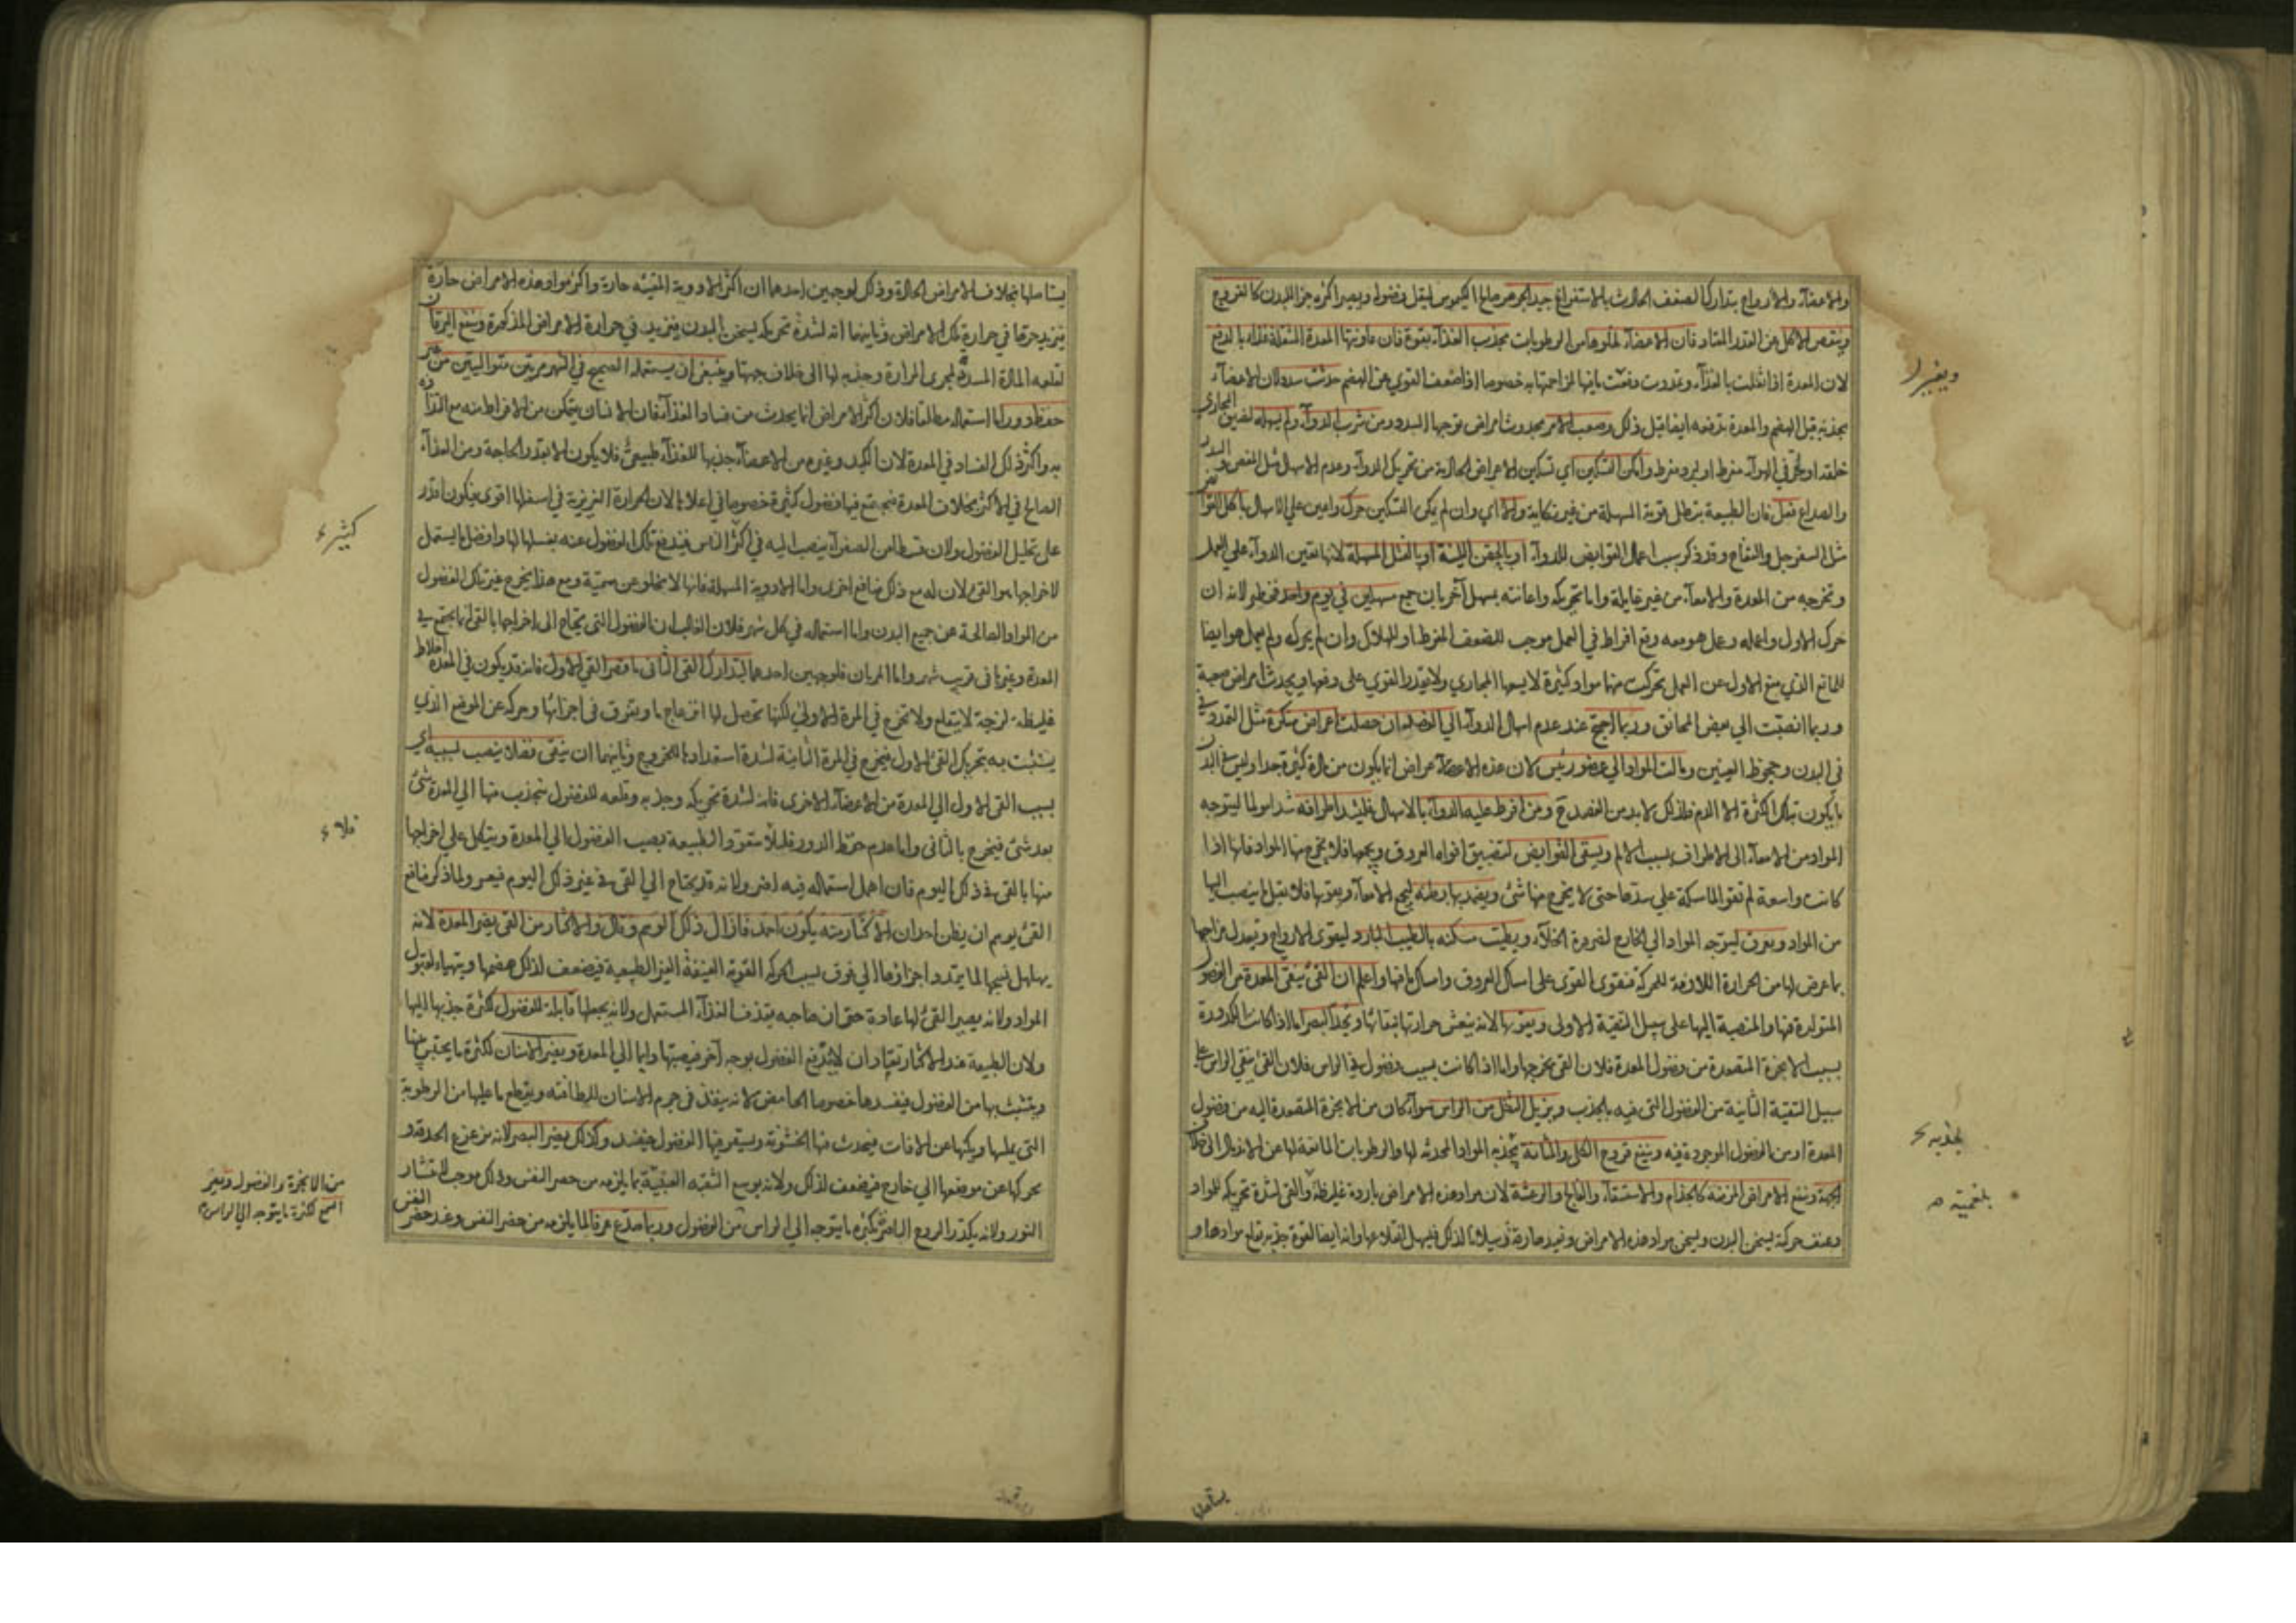 والاعضاء والارواح بتدارك الضعف الحادث بالاستفراغ جيد الجوهر صالح الكيموس ليقل فضوله ويصير اكثره جزا للبدن كالفروج
وينقص الاكل عن القدر المعتاد فان الاعضاء لخلوها من الرطوبات تجذب الغذاء بقوة فان عاونتها المعدة المثقلة بالدفع
لان المعدة اذا ثقلت بالغذاء وتمددت دفعت ما فيها لمزاحمتها به خصوصا اذا ضعفت القوي عن الهضم حدثت سدد لان الاعضاء
تجذبه قبل الهضم والمعدة تدفعه ايضا قبل ذلك وصعب الامر بحدوث امراض توجبها السدد ومن شرب الدواء ولم يسهله لضيق المجاري
خلقة او لحر في الهواء مفرط او لبرد مفرط وامكن التسكين اي تسكين الاعراض الحادثة من تحريك الدواء وعدم الاسهال مثل المغص
والصداع فعل فان الطبيعة تبطل قوته المسهلة من غير نكاية والا اي وان لم يمكن التسكين حرك واعين علي الاسهال باكل القوابض
مثل السفرجل والتفاح وقد ذكر سبب اعمال القوابض للدواء او بالحقن اللينة او بالفتل المسهلة لانها تعين الدواء علي العمل
وتخرجه من المعدة والامعاء من غير غايلة واما تحريكه واعانته بمسهل آخر بان جمع مسهلين في يوم واحد فخطر لانه ان
حرك الاول واعانه وعمل هو معه وقع افراط في العمل موجب للضعف المفرط او للهلاك وان لم يحركه ولم يعمل هو ايضا
للمانع الذي منع الاول عن العمل تحركت منهما مواد كثيرة لا يسعها المجاري ولا يقدر القوي علي دفعها ويحدث امراض صعبة
وربما انصبت الي بعض المخانق وربما احتيج عند عدم اسهال الدواء الي الفصد ان حصلت اعراض منكرة مثل التمدد
في البدن وجحوظ العينين ومالت المواد الي عضو رئيس لان هذه الاعراض انما يكون من مادة كثيرة جدا وليس في البدن
ما يكون بتلك الكثرة الا الدم فلذلك لا بد من الفصد ح ومن افرط عليه الدواء بالاسهال فليشد اطرافه شدا مولما ليتوجه
المواد من الامعاء الي الاطراف بسبب الالم ويسقي القوابض لتضييق افواه العروق وجمعها فلا يخرج منها المواد فانها اذا
كانت واسعة لم تقو الماسكة علي سدها حتي لا يخرج منها شئ ويضمد بها بطنه ليجمع الامعاء ويقويها فلا يقبل ما ينصب اليها
من المواد ويعرق ليتوجه المواد الي الخارج لضرورة الخلاء ويطيب مسكنه بالطيب البارد ليقوي الارواح وتعدل مزاجها
بما عرض لها من الحرارة اللازمة للحركة فتقوي القوي علي امساك العروق وامساك ما فيها واعلم ان القئ ينقي المعدة من الفضول
المتولدة فيها والمنصبة اليها علي سبيل التنقية الاولي ويقويها لانه ينعش حرارتها بنقائها ويحد البصر اما اذا كانت الكدورة
بسبب الابخرة المتصعدة من فضول المعدة فلان القئ يخرجها واما اذا كانت بسبب فضول في الراس فلان القئ ينقي الراس علي
سبيل التنقية الثانية من الفضول التي فيه بالجذب ويزيل الثقل من الراس سواء كان من الابخرة المتصعدة اليه من فضول
المعدة او من الفضول الموجودة فيه وينفع قروح الكلي والمثانة بجذبه المواد المحدثة لها والرطوبات المانعة لها عن الاندمال الي خلاف
الجهة وينفع الامراض المزمنة كالجذام والاستسقاء والفالج والرعشة لان مواد هذه الامراض باردة غليظة والقئ لشدة تحريكه للمواد
وعنف حركته يسخن البدن ويسخن مواد هذه الامراض وتفيدها رقة وسيلانا لذلك فيسهل انقلاعها وانه ايضا لقوة جذبه يقلع موادها و
ويغير
لجذبه
بلغمية
يستاصلها
يستاصلها بخلاف الامراض الحادة وذلك لوجهين احدهما ان اكثر الادوية المقيئة حارة واكثر مواد هذه الامراض حارة
فيزيد حرقا في حرارة تلك الامراض وثانيهما انه لشدة تحريكه يسخن البدن فيزيد في حرارة الامراض المذكورة وينفع اليرقان
لقلعه المادة المسددة لمجري المرارة وجذبه لها الي خلاف جهتها وينبغي ان يستعمله الصحيح في الشهر مرتين متواليتين من غير
حفظ دور اما استعماله مطلقا فلان اكثر الامراض انما يحدث من فساد الغذاء فان الانسان يتمكن من الافراط منه مع التذاذه
به واكثر ذلك الفساد في المعدة لان الكبد وغيره من الاعضاء جذبها للغذاء طبيعي فلا يكون الا بقدر الحاجة ومن الغذاء
الصالح في الاكثر بخلاف المعدة فيجتمع فيها فضول كثيرة خصوصا في اعلاها لان الحرارة الغريزية في اسفلها اقوي فيكون اقدر
علي تحليل الفضول ولان قسطا من الصفراء ينصب اليه في اكثر الناس فيندفع تلك الفضول عنه بغسلها لها وافضل ما يستعمل
لاخراجها هو القئ لان له مع ذلك منافع اخري واما الادوية المسهلة فانها لا يخلو عن سمية ومع هذا يخرج غير تلك الفضول
من المواد الصالحة عن جميع البدن واما استعماله في كل شهر فلان الغالب ان الفضول التي يحتاج الي اخراجها بالقئ انما يجتمع في
المعدة وغيرها في قريب شهر واما المرتان فلوجهين احدهما ليتدارك القئ الثاني ما قصر القئ الاول فانه قد يكون في المعدة اخلاط
غليظة لزجة لا ينقلع ولا يخرج في المرة الاولي لكنها تحصل لها انزعاج ما وتفرق في اجزائها وحركة عن الموضع الذي
يتشبث به بتحريك القئ الاول فيخرج في المرة الثانية لشدة استعدادها للخروج وثانيهما ان ينقي فضلا ينصب بسببه اي
بسبب القئ الاول الي المعدة من الاعضاء الاخري فانه لشدة تحريكه وجذبه وقلعه للفضول تنجذب منها الي المعدة شئ
بعد شئ فيخرج بالثاني واما عدم حفظ الدور فلئلا يتعود الطبيعة بصب الفضول الي المعدة ويتكل علي اخراجها
منها بالقئ في ذلك اليوم فان اهمل استعماله فيه اضر ولانه قد يحتاج الي القئ في غير ذلك اليوم فيعسر ولما ذكر منافع
القئ يوهم ان يظن احد ان الاكثار منه يكون احمد فازال ذلك الوهم وقال والاكثار من القئ يضر المعدة لانه
يهلهل نسجها لما يمتد اجزاؤها الي فوق بسبب الحركة القوية العنيفة الغير الطبيعية فيضعف لذلك هضمها ويتهياء لقبول
المواد ولانه يصير القئ لها عادة حتي ان صاحبه يقذف الغذاء المستعمل ولانه يجعلها قابلة للفضول لكثرة جذبها اليها
ولان الطبيعة عند الاكثار تعتاد ان لا يدفع الفضول بوجه آخر فيصبها دايما الي المعدة ويضر الاسنان لكثرة ما يحتبس فيها
ويتشبث بها من الفضول فيفسدها خصوصا الحامض لانه ينفذ في جرم الاسنان للطافته ويقطع ما عليها من الرطوبة
التي يملسها ويكنها عن الآفات فيحدث فيها الخشونة ويستقر فيها الفضول فيفسد وكذلك يضر البصر لانه يزعزع الحدقة و
يحركها عن موضعها الي خارج فيضعف لذلك ولانه يوسع الثقبة العنبية بما يلزمه من حصر النفس وذلك موجب لانتشار
النور ولانه يكدر الروح الباصر بكثرة ما يتوجه الي الراس من الفضول وربما صدع عرقا لما يلزمه من حصر النفس وعند حصر النفس
كثيرة
فلا
من الابخرة والفضول ويضر
السمع لكثرة ما يتوجه الي الراس